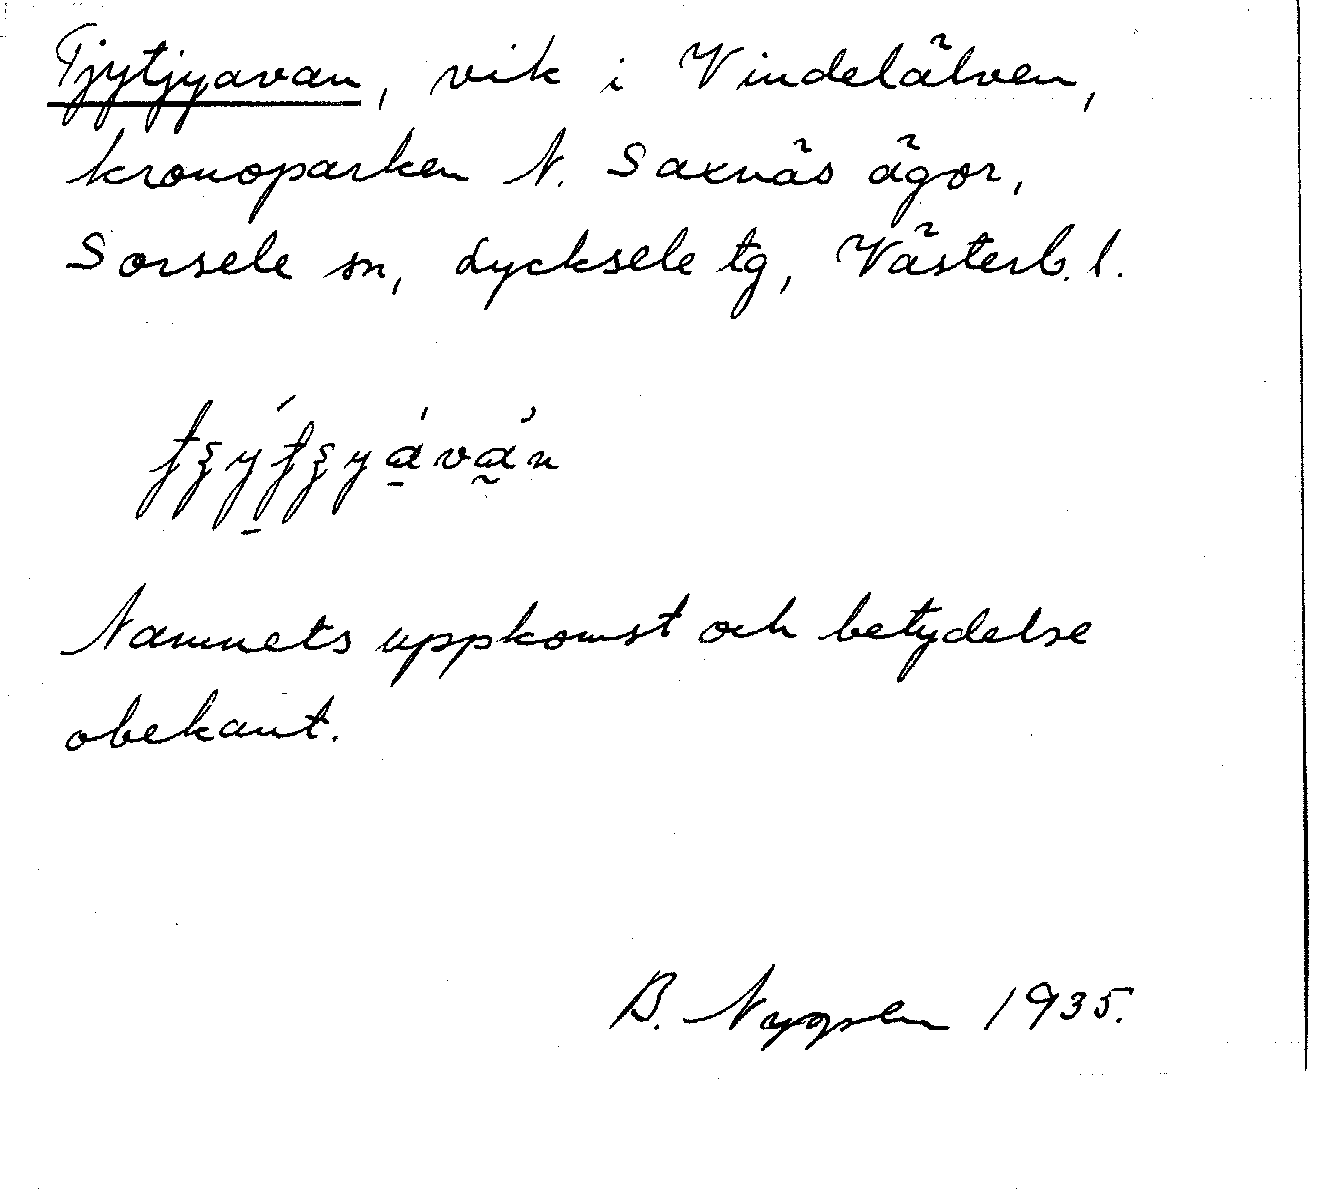 Tjytjyavan, vik i Vindelälven,
kronoparken N. Saxnäs ägor,
Sorsele sn, Lycksele tg, Västerb. l.
Namnets uppkomst och betydelse
obekant.
B. Nygren 1935.